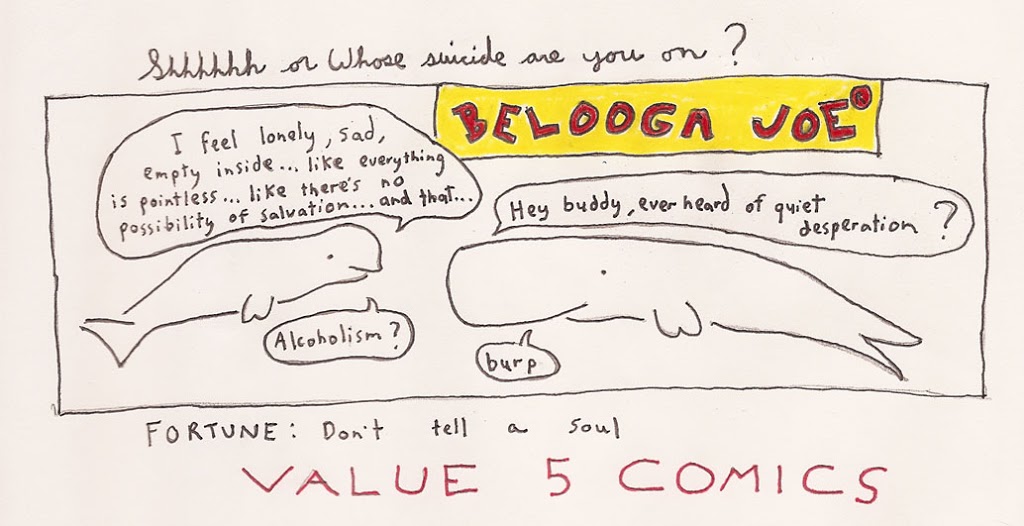 Shhhhhh or Whose suicide are you on?
BELOOGA JOE®
I feel lonely, sad,
empty inside... like everything
is pointless... like there's no
possibility of salvation... and that...
Hey buddy, ever heard of quiet
desperation?
Alcoholism?
burp
FORTUNE: Don't tell a soul
VALUE 5 COMICS